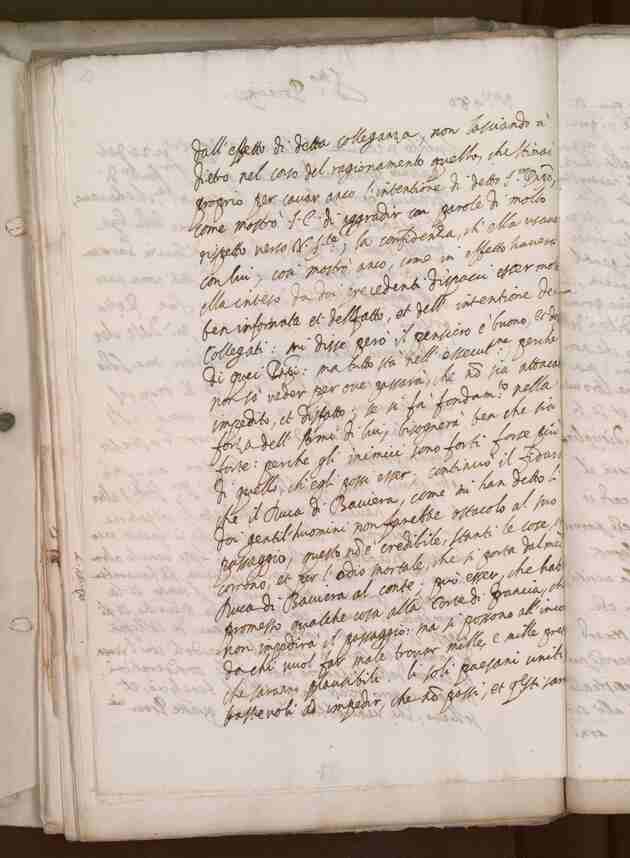 dall'effetto di detta colleganza, non lasciando à
dietro nel corso del ragionamento quello, che stimai
proprio per cavar anco l'intentione di detto
come mostrò S. E. di aggradir con parole di molto
rispetto verso V. Stà; la confidenza, ch'ella usava
con lui; così mostrò anco, come in effetto haveva
ella inteso da doi precedenti dispacci esser molto
ben informata et dell'fatto, et dell'intentione de
Collegati: mi disse però il pensiero è buono, et
di quei ma tutto stà nell' perche
non sò veder per ove passarà, che nõ sia attacat
impedito, et disfatto; se si fà fondam.to nella
forza dell'Armi di lui, bisognerà ben che sia
forte: perche gli inimici sono forti forse più
di quello, ch'egli possi esser. continuò il
che il Duca di Baviera, come mi han detto
doi gentilhuomini non farebbe ostacolo al suo
passaggio, questo nõ è credibile, stanti le cose,
corrono, et per l'odio mortale, che si porta dal
Duca di Baviera al conte; può esser, che hab
promesso qualche cosa alla Corte di Francia, ch
non impedirà il passaggio: ma si possono all'inco
da chi vuol far male trovar mille, e mille pre
che saranno plausibili li soli paesani uniti
bastevoli ad impedir, che nõ passi, et q.esti sar